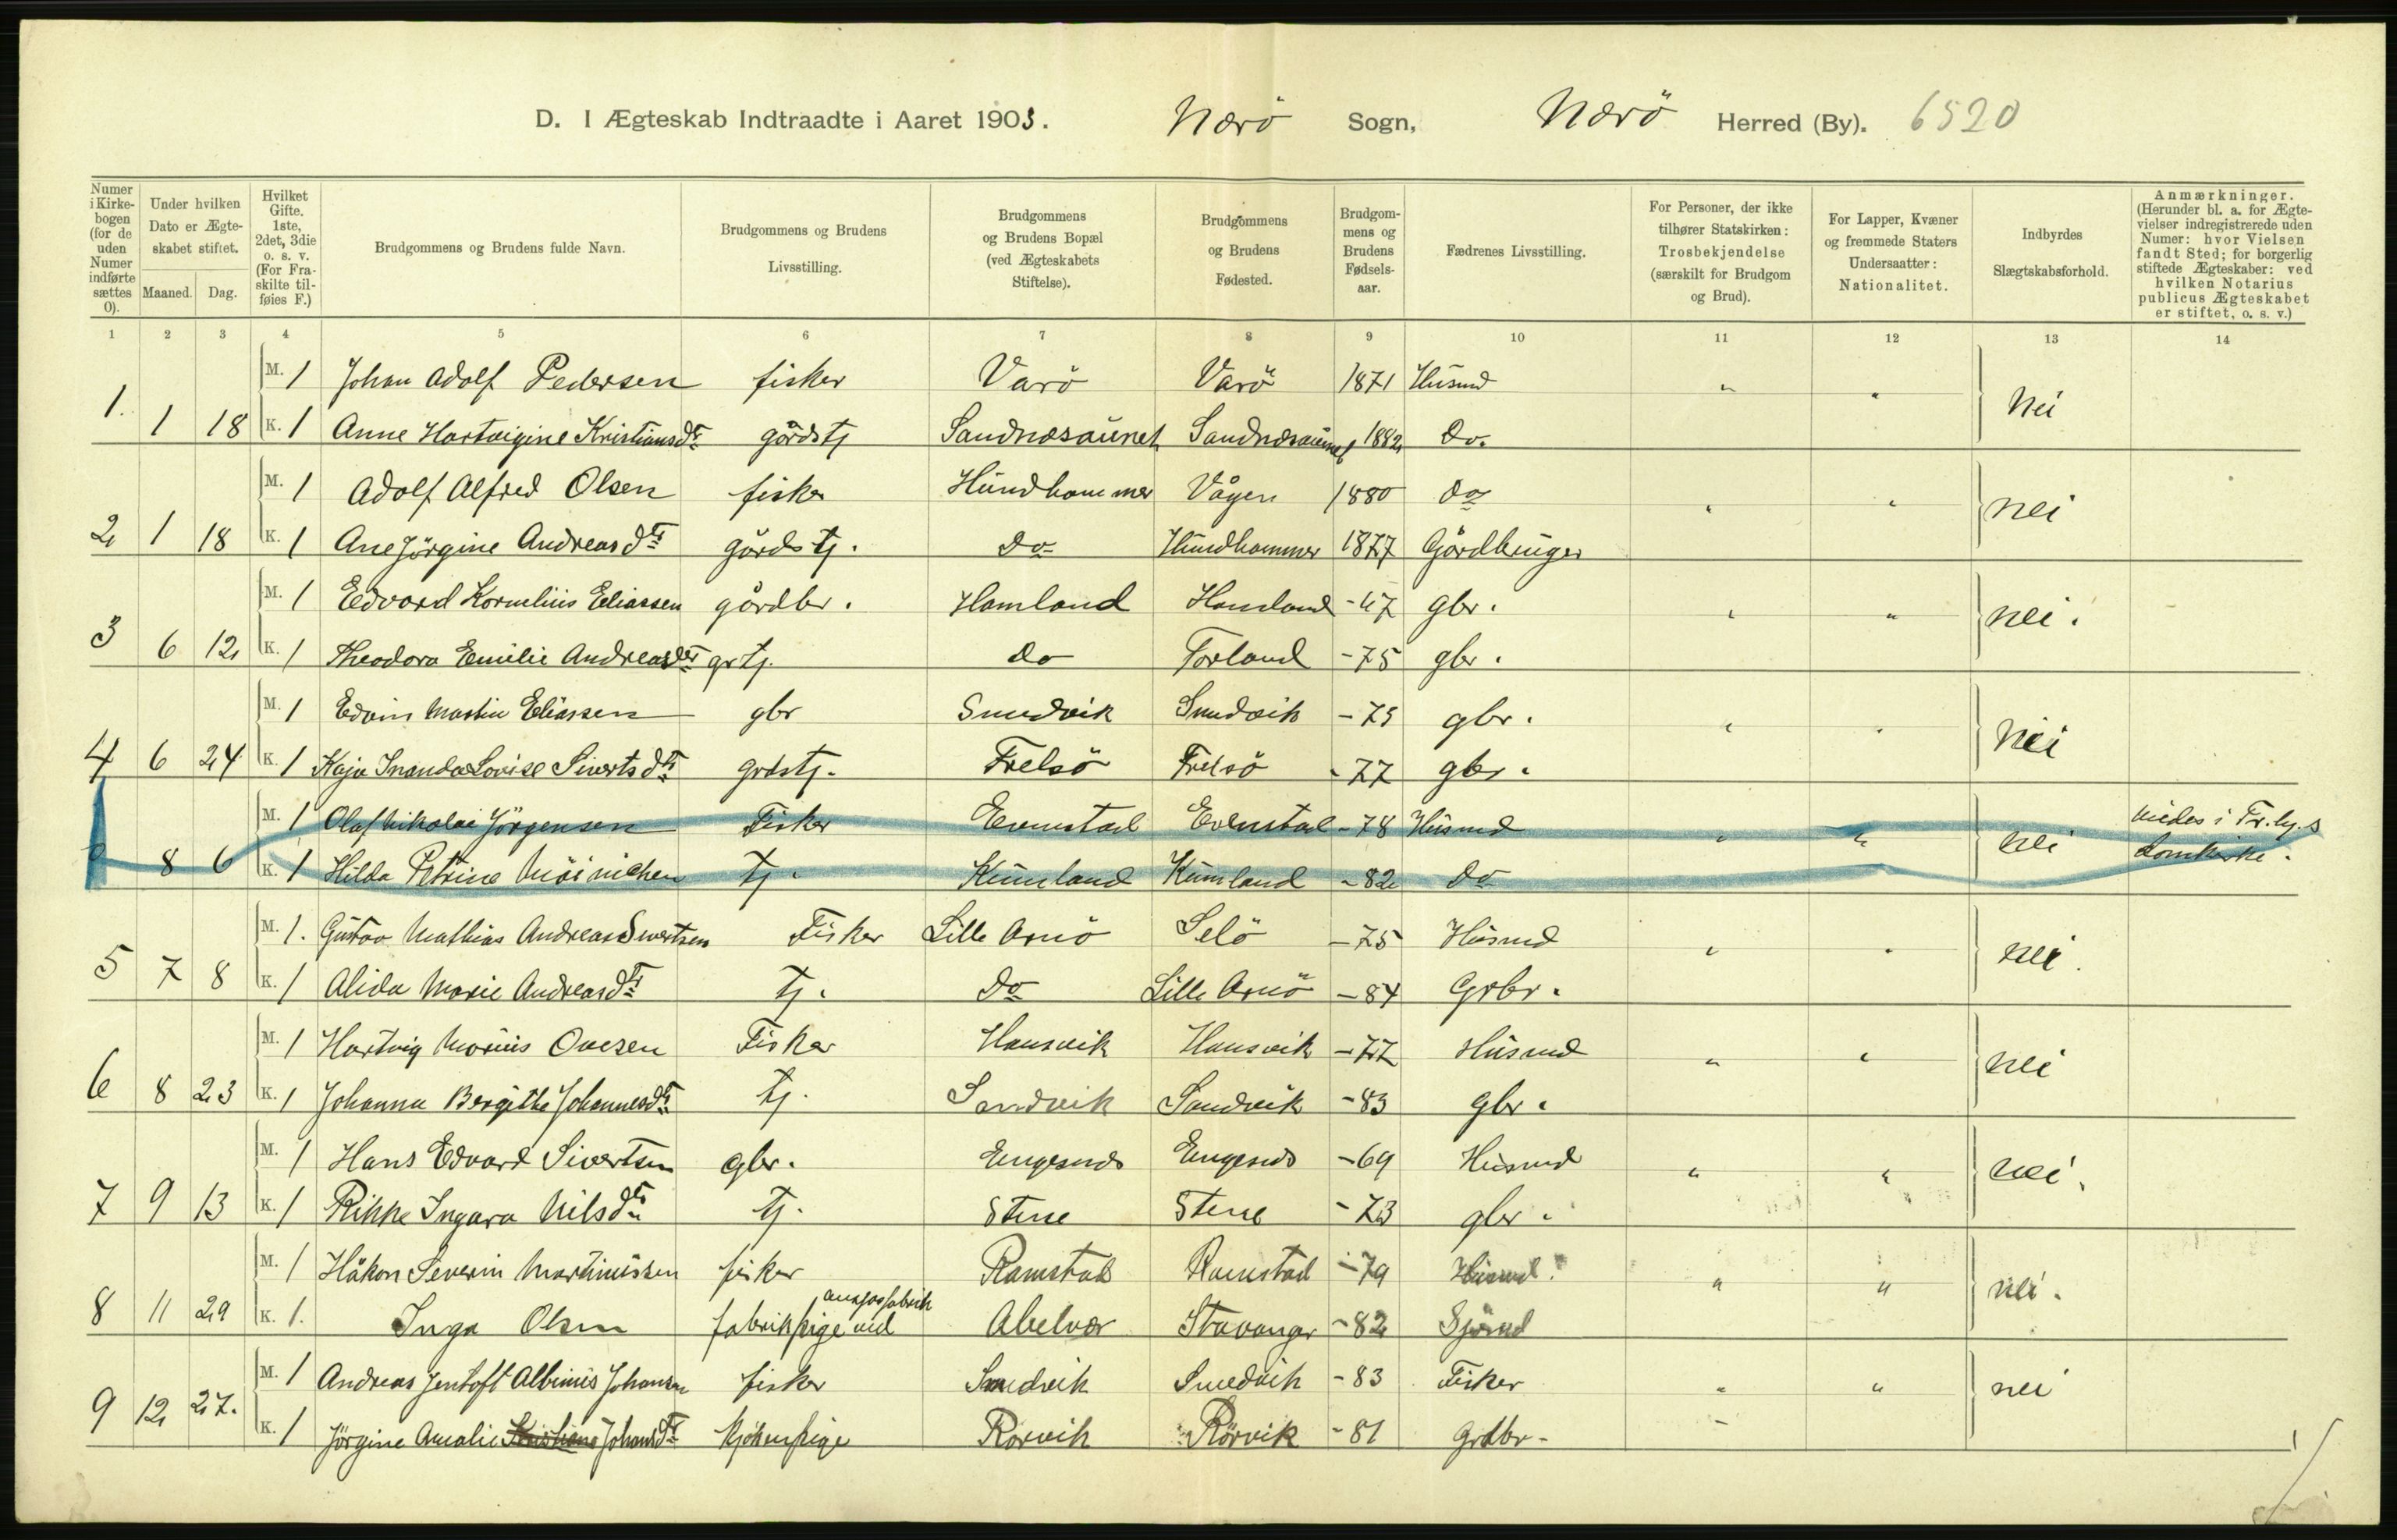 D. I Ægteskab Indtraadte i Aaret 1903. Nærö Sogn, Nærö Herred (By). 6520
Numer i Kirkebogen (for de uden Numer indførte sættes 0).
Under hvilken Dato er Ægteskabet stiftet.
Maaned. Dag.
Hvilket Gifte. 1ste, 2det, 3die o. s. v. (For Fraskilte tilføies F.)
Brudgommens og Brudens fulde Navn.
Brudgommens og Brudens Livsstilling.
Brudgommens og Brudens Bopæl (ved Ægteskabets Stiftelse).
Brudgommens og Brudens Fødested.
Brudgommens og Brudens Fødselsaar.
Fædrenes Livsstilling.
For Personer, der ikke tilhører Statskirken: Trosbekjendelse (særskilt for Brudgom og Brud).
For Lapper, Kvæner og fremmede Staters Undersaatter: Nationalitet.
Indbyrdes Slægtskabsforhold.
Anmærkninger. (Herunder bl. a. for Ægtevielser indregistrerede uden Numer: hvor Vielsen fandt Sted; for borgerlig stiftede Ægteskaber: ved hvilken Notarius publicus Ægteskabet er stiftet, o. s. v.)
1 2 3 4 5 6 7 8 9 10 11 12 13 14
M. 1 Johan Adolf Pedersen fisker Varö Varö 1871 Husmd " "
1. 1 18 K. 1 Anne Hartvigine Kristiansdtr gårdstj Sandnæsaunet Sandnæsaunet 1882 Do. Nei
M. 1 Adolf Alfred Olsen fisker Hundhammer Vågen 1880 do " "
2 1 18 K. 1 Ane Jörgine Andreasdtr gårdstj. do Hundhammer 1877 Gårdbruger nei
M. 1 Edvard Kornelius Eliassen gårdbr. Hamland Hamland -47 gbr. " "
3 6 12 K. 1 Theodora Emilie Andreasdtr grtj. do Torland -75 gbr. nei.
M. 1 Edvin Martin Eliassen gbr Smedvik Smedvik -75 gbr. " "
4 6 24 K. 1 Kaja Lovise Sivertsdtr grdstj. Frelsö Frelsö -77 gbr. Nei
M. 1 Olaf Nikolai Jörgensen Fisker Evenstad Evenstad -78 Husmd " " viedes i Tr.hj.s
8 6 K. 1 Hilda Petrine tj. Kumland Kumland -82 do nei Domkirke.
M. 1. Gustav Mathias Andreas Sivertsen Fisker Lille Arnö Selö -75 Husmd " "
5 7 8 K. 1 Alida Marie Andreasdtr tj. do Lille Arnö -84 Grbr. nei.
M. 1 Hartvig Marius Ovesen Fisker Hansvik Hansvik -77 Husmd " "
6 8 23 K. 1 Johanna Bergitte Johannesdtr tj. Sandvik Sandvik -83 gbr. nei
M. 1 Hans Edvard Sivertsen gbr. Engesnds Engesnds -69 Husmd " "
7 9 13 K. 1 Rikke Ingara Nilsdtr tj. Stene Stene -73 gbr. nei.
M. 1 Håkon Severin Martinussen fisker Ramstad Ramstad -79 Husmd. " "
8 11 29 K. 1. Inga Olsen fabrikpige ved Abelvær Stavanger -82 Sjömd nei.
M. 1 Andreas Jentoft Albinus Johansen fisker Smedvik Smedvik -83 Fisker " "
9 12 27. K. 1 Jörgine Amalie Johansdtr kjökenpige Rörvik Rörvik -81 Grdbr- nei